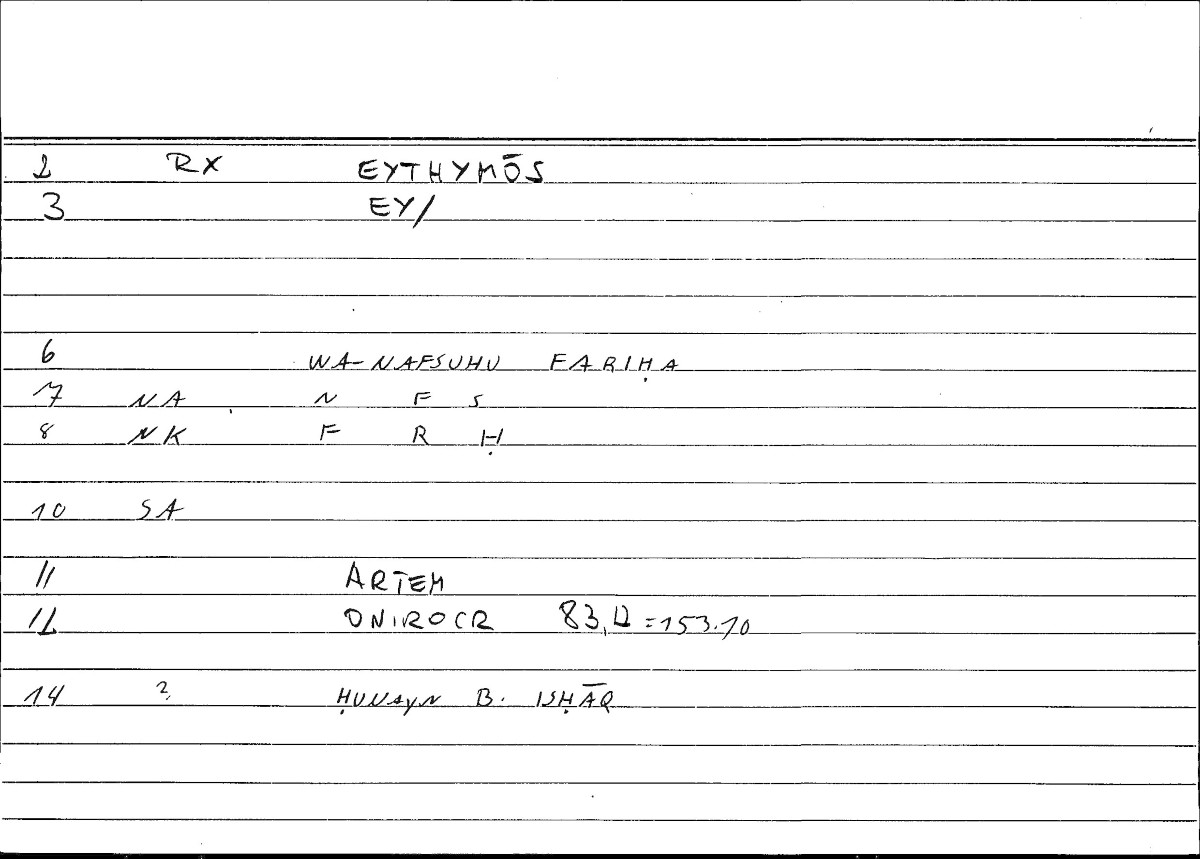 2 RX EYTHYMŌS
3 EY/
6 WA-NAFSUHU FARIḤA
7 NA N F S
8 NK F R Ḥ
10 SA
11 ARTEM
12 ONIROCR 83,12=153.10
14 ? ḤUNAYN B. ISḤĀQ